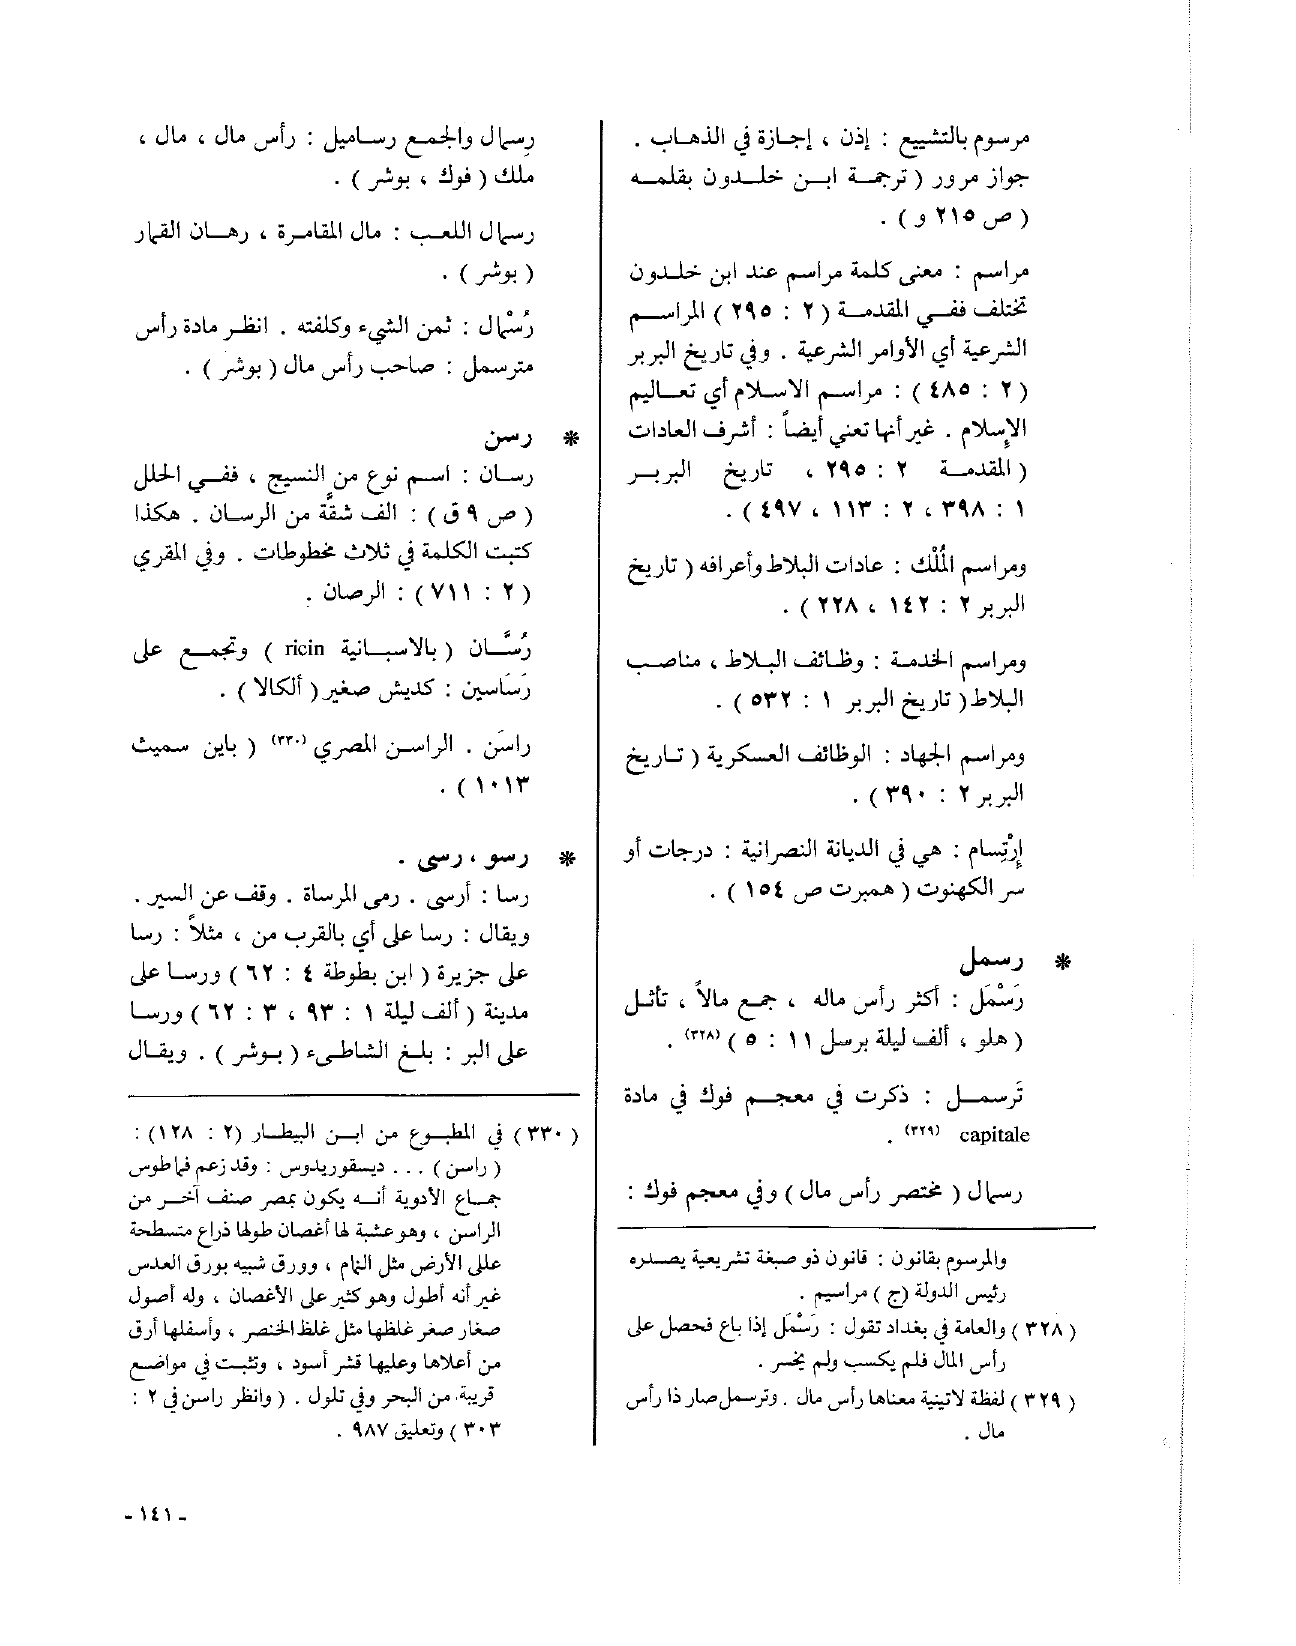 مرسوم بالتشييع : إذن ، إجازة في الذهاب .
جواز مرور ( ترجمة ابن خلدون بقلمه
( ص ٢١٥ و ) .
مراسم : معنى كلمة مراسم عند ابن خلدون
تختلف ففي المقدمة ( ٢ : ٢٩٥ ) المراسم
الشرعية أي الأوامر الشرعية . وفي تاريخ البربر
( ٢ : ٤٨٥ ) : مراسم الاسلام أي تعاليم
الإسلام . غير أنها تعني أيضاً : أشرف العادات
( المقدمة ٢ : ٢٩٥ ، تاريخ البربر
١ : ٣٩٨ ، ٢ : ١١٣ ، ٤٩٧ ) .
ومراسم المُلْك : عادات البلاط وأعرافه ( تاريخ
البربر ٢ : ١٤٢ ، ٢٢٨ ) .
ومراسم الخدمة : وظائف البلاط ، مناصب
البلاط ( تاريخ البربر ١ : ٥٣٢ ) .
ومراسم الجهاد : الوظائف العسكرية ( تاريخ
البربر ٢ : ٣٩٠ ) .
إرْتِسام : هي في الديانة النصرانية : درجات أو
سر الكهنوت ( همبرت ص ١٥٤ ) .
* رسمل
رَسْمَل : أكثر رأس ماله ، جمع مالاً ، تأثل
( هلو ، ألف ليلة برسل ١١ : ٥ ) (٣٢٨) .
تَرسمل : ذكرت في معجم فوك في مادة
capitale (٣٢٩) .
رسمال ( مختصر رأس مال ) وفي معجم فوك :
والمرسوم بقانون : قانون ذو صبغة تشريعية يصدره
رئيس الدولة (ج) مراسيم .
( ٣٢٨ ) والعامة في بغداد تقول : رَسْمَل إذا باع فحصل على
رأس المال فلم يكسب ولم يخسر .
( ٣٢٩ ) لفظة لاتينية معناها رأس مال . وترسمل صار ذا رأس
مال .
رِسمال والجمع رساميل : رأس مال ، مال ،
ملك ( فوك ، بوشر ) .
رسمال اللعب : مال المقامرة ، رهان القمار
( بوشر ) .
رُسْمال : ثمن الشيء وكلفته . انظر مادة رأس
مترسمل : صاحب رأس مال ( بوشر ) .
* رسن
رسان : اسم نوع من النسيج ، ففي الحلل
( ص ٩ ق ) : الف شقَّة من الرسان . هكذا
كتبت الكلمة في ثلاث مخطوطات . وفي المقري
( ٢ : ٧١١ ) : الرصان .
رُسَّان ( بالاسبانية ricin ) وتجمع على
رَسَاسين : كديش صغير ( ألكالا ) .
راسَن . الراسن المصري (٣٣٠) ( باين سميث
١٠١٣ ) .
* رسو ، رسى .
رسا : أرسى . رمى المرساة . وقف عن السير .
ويقال : رسا على أي بالقرب من ، مثلاً : رسا
على جزيرة ( ابن بطوطة ٤ : ٦٢ ) ورسا على
مدينة ( ألف ليلة ١ : ٩٣ ، ٣ : ٦٢ ) ورسا
على البر : بلغ الشاطىء ( بوشر ) . ويقال
( ٣٣٠ ) في المطبوع من ابن البيطار (٢ : ١٢٨) :
( راسن ) . . . ديسقوريدوس : وقد زعم قراطوس
جماع الأدوية أنه يكون بمصر صنف آخر من
الراسن ، وهو عشبة لها أغصان طولها ذراع منسطحة
عللى الأرض مثل النمام ، وورق شبيه بورق العدس
غير أنه أطول وهو كثير على الأغصان ، وله أصول
صغار صفر غلظها مثل غلظ الخنصر ، وأسفلها أرق
من أعلاها وعليها قشر أسود ، وتثبت في مواضع
قريبة من البحر وفي تلول . ( وانظر راسن في ٢ :
٣٠٣ ) وتعليق ٩٨٧ .
- ١٤١ -